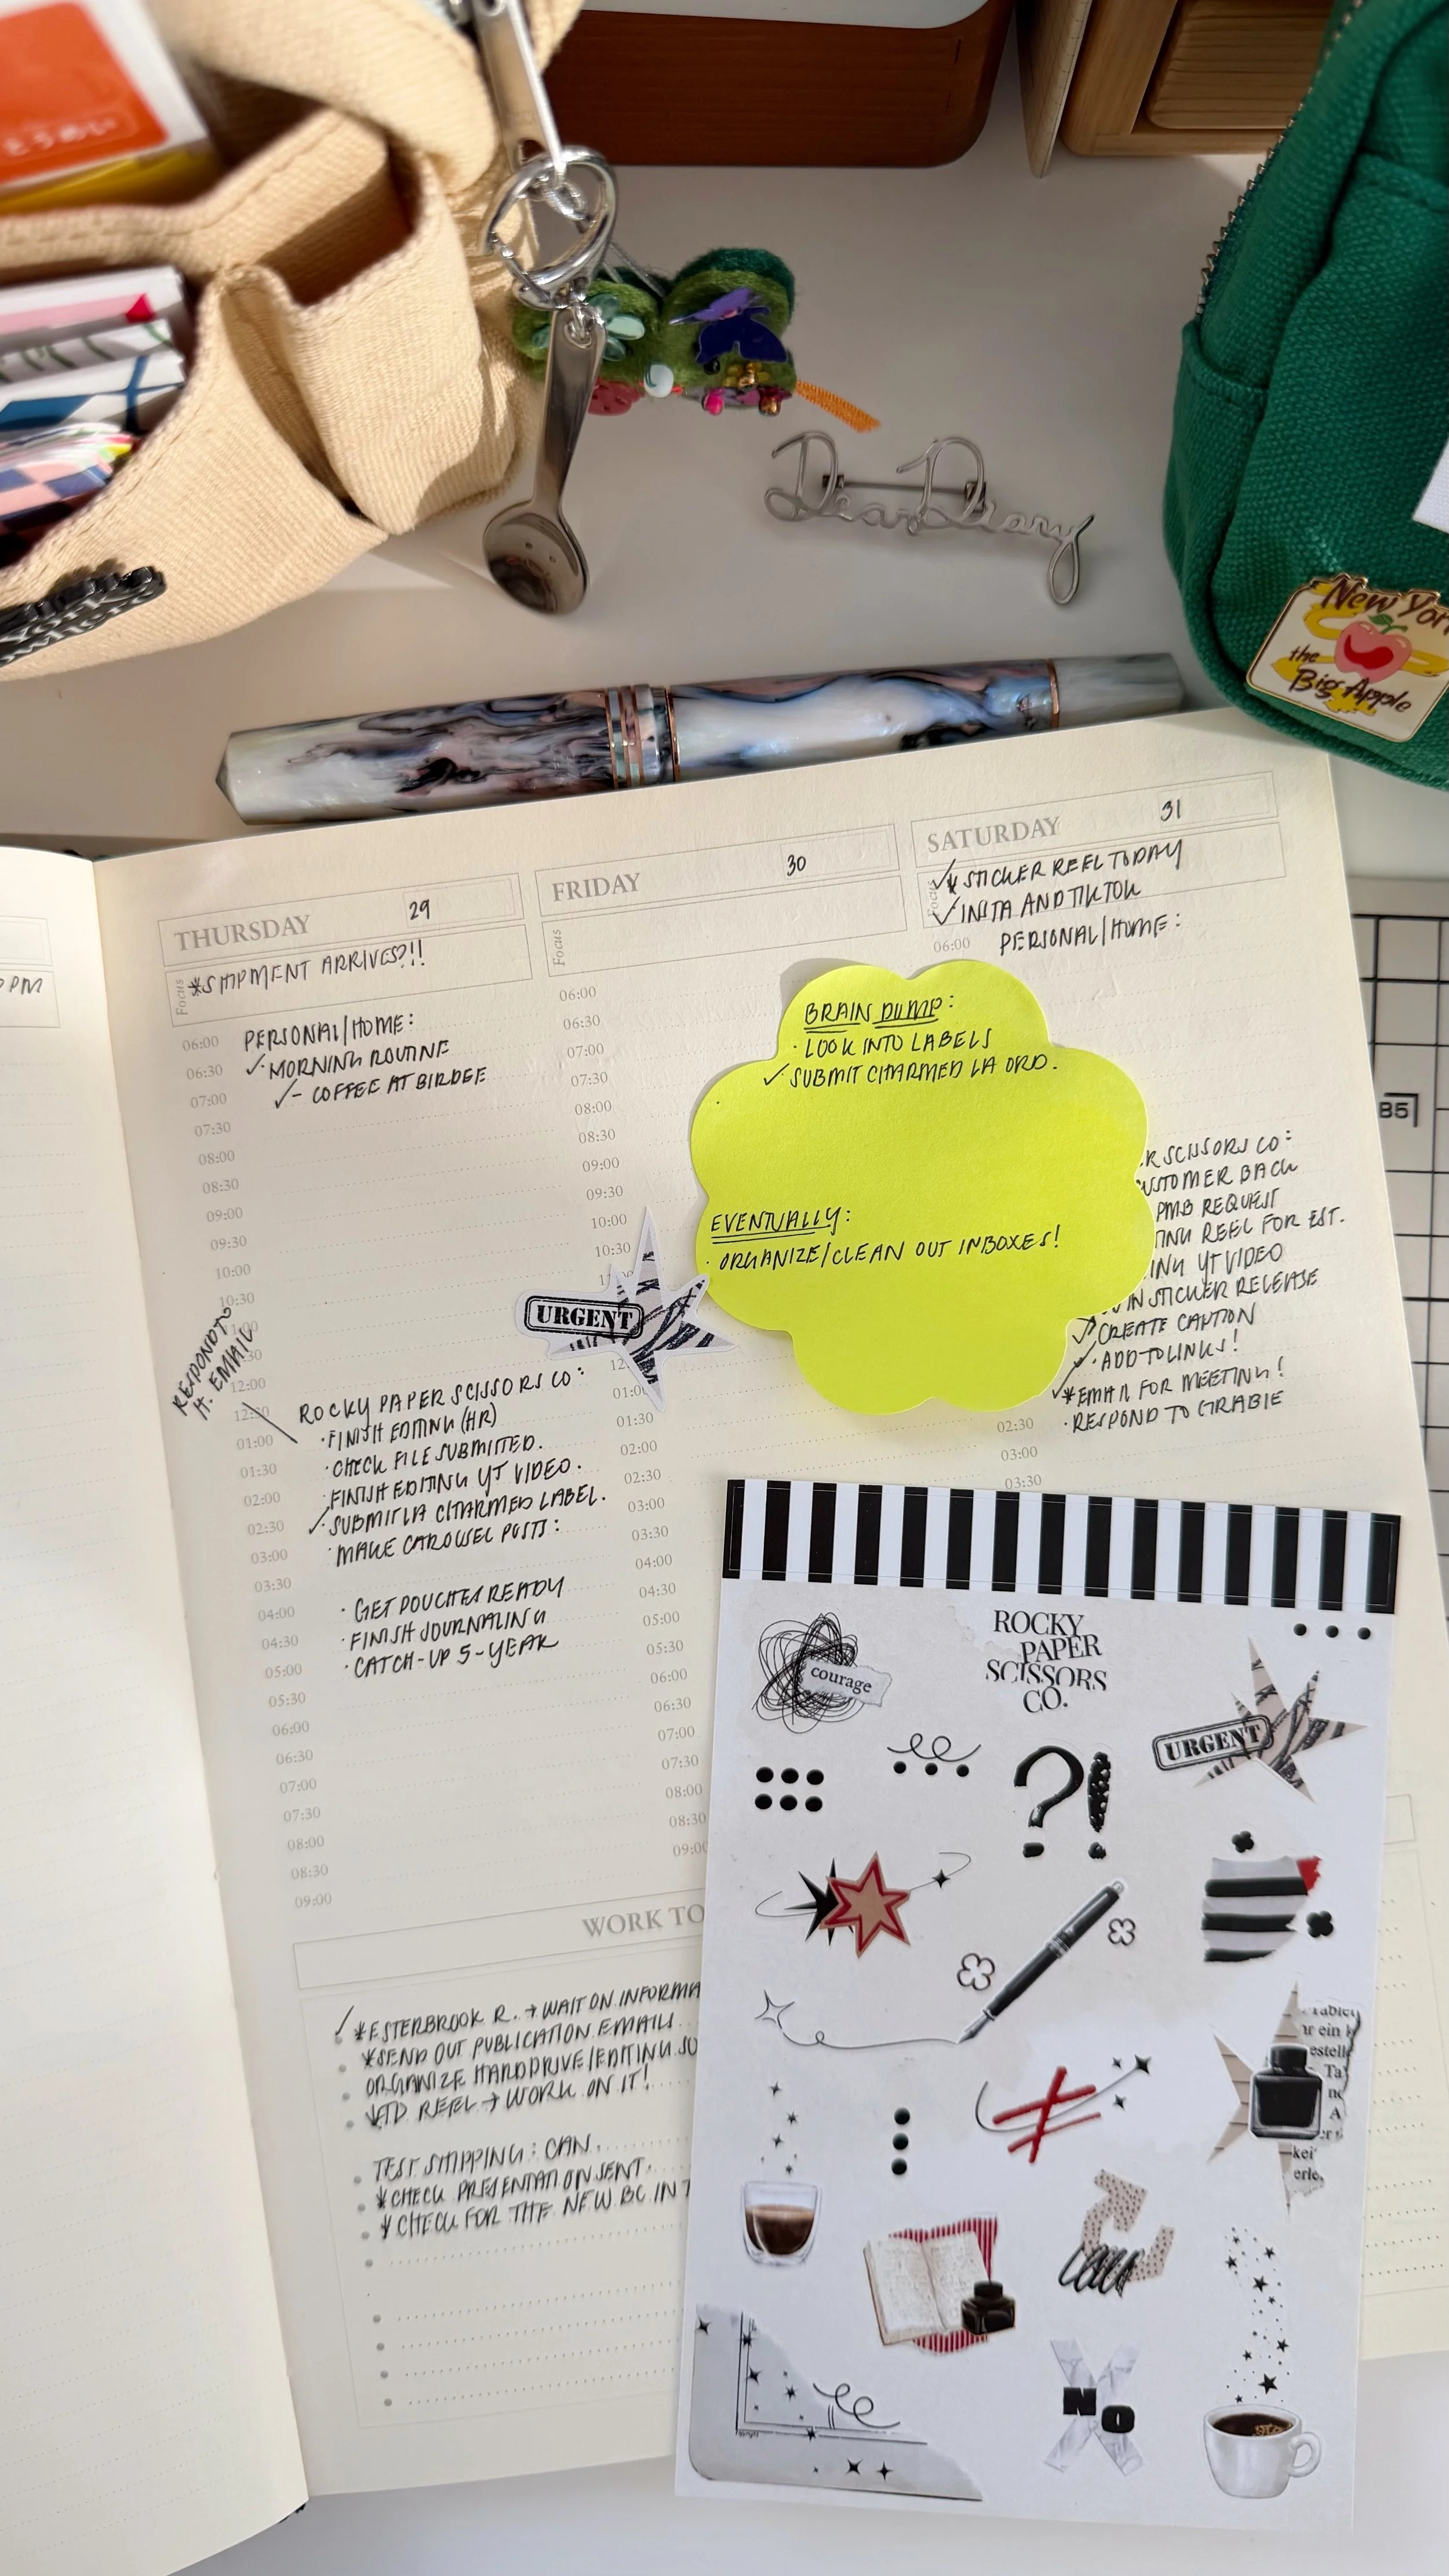 New York
the
Big Apple
Dear Diary
THURSDAY 29
Focus
*SHIPMENT ARRIVES?!!
PERSONAL/HOME:
✓·MORNING ROUTINE
✓- COFFEE AT BIRDEE
RESPOND TO
H. EMAIL
ROCKY PAPER SCISSORS CO:
·FINISH EDITING (HR)
·CHECK FILE SUBMITTED.
·FINISH EDITING YT VIDEO.
✓·SUBMIT LA CHARMED LABEL.
·MAKE CAROUSEL POSTS:
·GET POUCHES READY
·FINISH JOURNALING
·CATCH-UP 5-YEAR
06:00
06:30
07:00
07:30
08:00
08:30
09:00
09:30
10:00
10:30
12:00
01:00
01:30
02:00
02:30
03:00
03:30
04:00
04:30
05:00
05:30
06:00
06:30
07:00
07:30
08:00
08:30
09:00
FRIDAY 30
Focus
06:00
06:30
07:00
07:30
08:00
08:30
09:00
09:30
10:00
10:30
01:30
02:00
02:30
03:00
03:30
04:00
04:30
05:00
05:30
06:00
06:30
07:00
07:30
08:00
08:30
09:00
URGENT
BRAIN DUMP:
·LOOK INTO LABELS
✓SUBMIT CHARMED LA ORD.
EVENTUALLY:
·ORGANIZE/CLEAN OUT INBOXES!
SATURDAY 31
✓*STICKER REEL TODAY
✓INSTA AND TIKTOK
06:00 PERSONAL/HOME:
SCISSORS CO:
CUSTOMER BACK
PMB REQUEST
REEL FOR EST.
YT VIDEO
STICKER RELEASE
✓·CREATE CAPTION
✓·ADD TO LINKS!
✓*EMAIL FOR MEETING!
·RESPOND TO GRABIE
02:30
03:00
03:30
B5
WORK TO
✓*ESTERBROOK R. → WAIT ON
*SEND OUT PUBLICATION EMAILS.
ORGANIZE HARDDRIVE/EDITING
REEL → WORK ON IT!
TEST SHIPPING: CAN.
*CHECK PRESENTATION SENT.
*CHECK FOR THE NEW BC IN
ROCKY
PAPER
SCISSORS
CO.
courage
URGENT
?!
NO